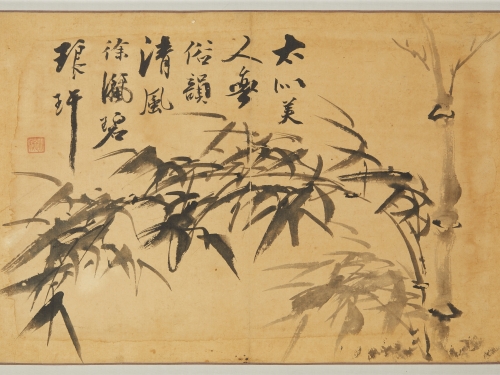 太似美
人無
俗韻
清風
徐灑碧
琅玕